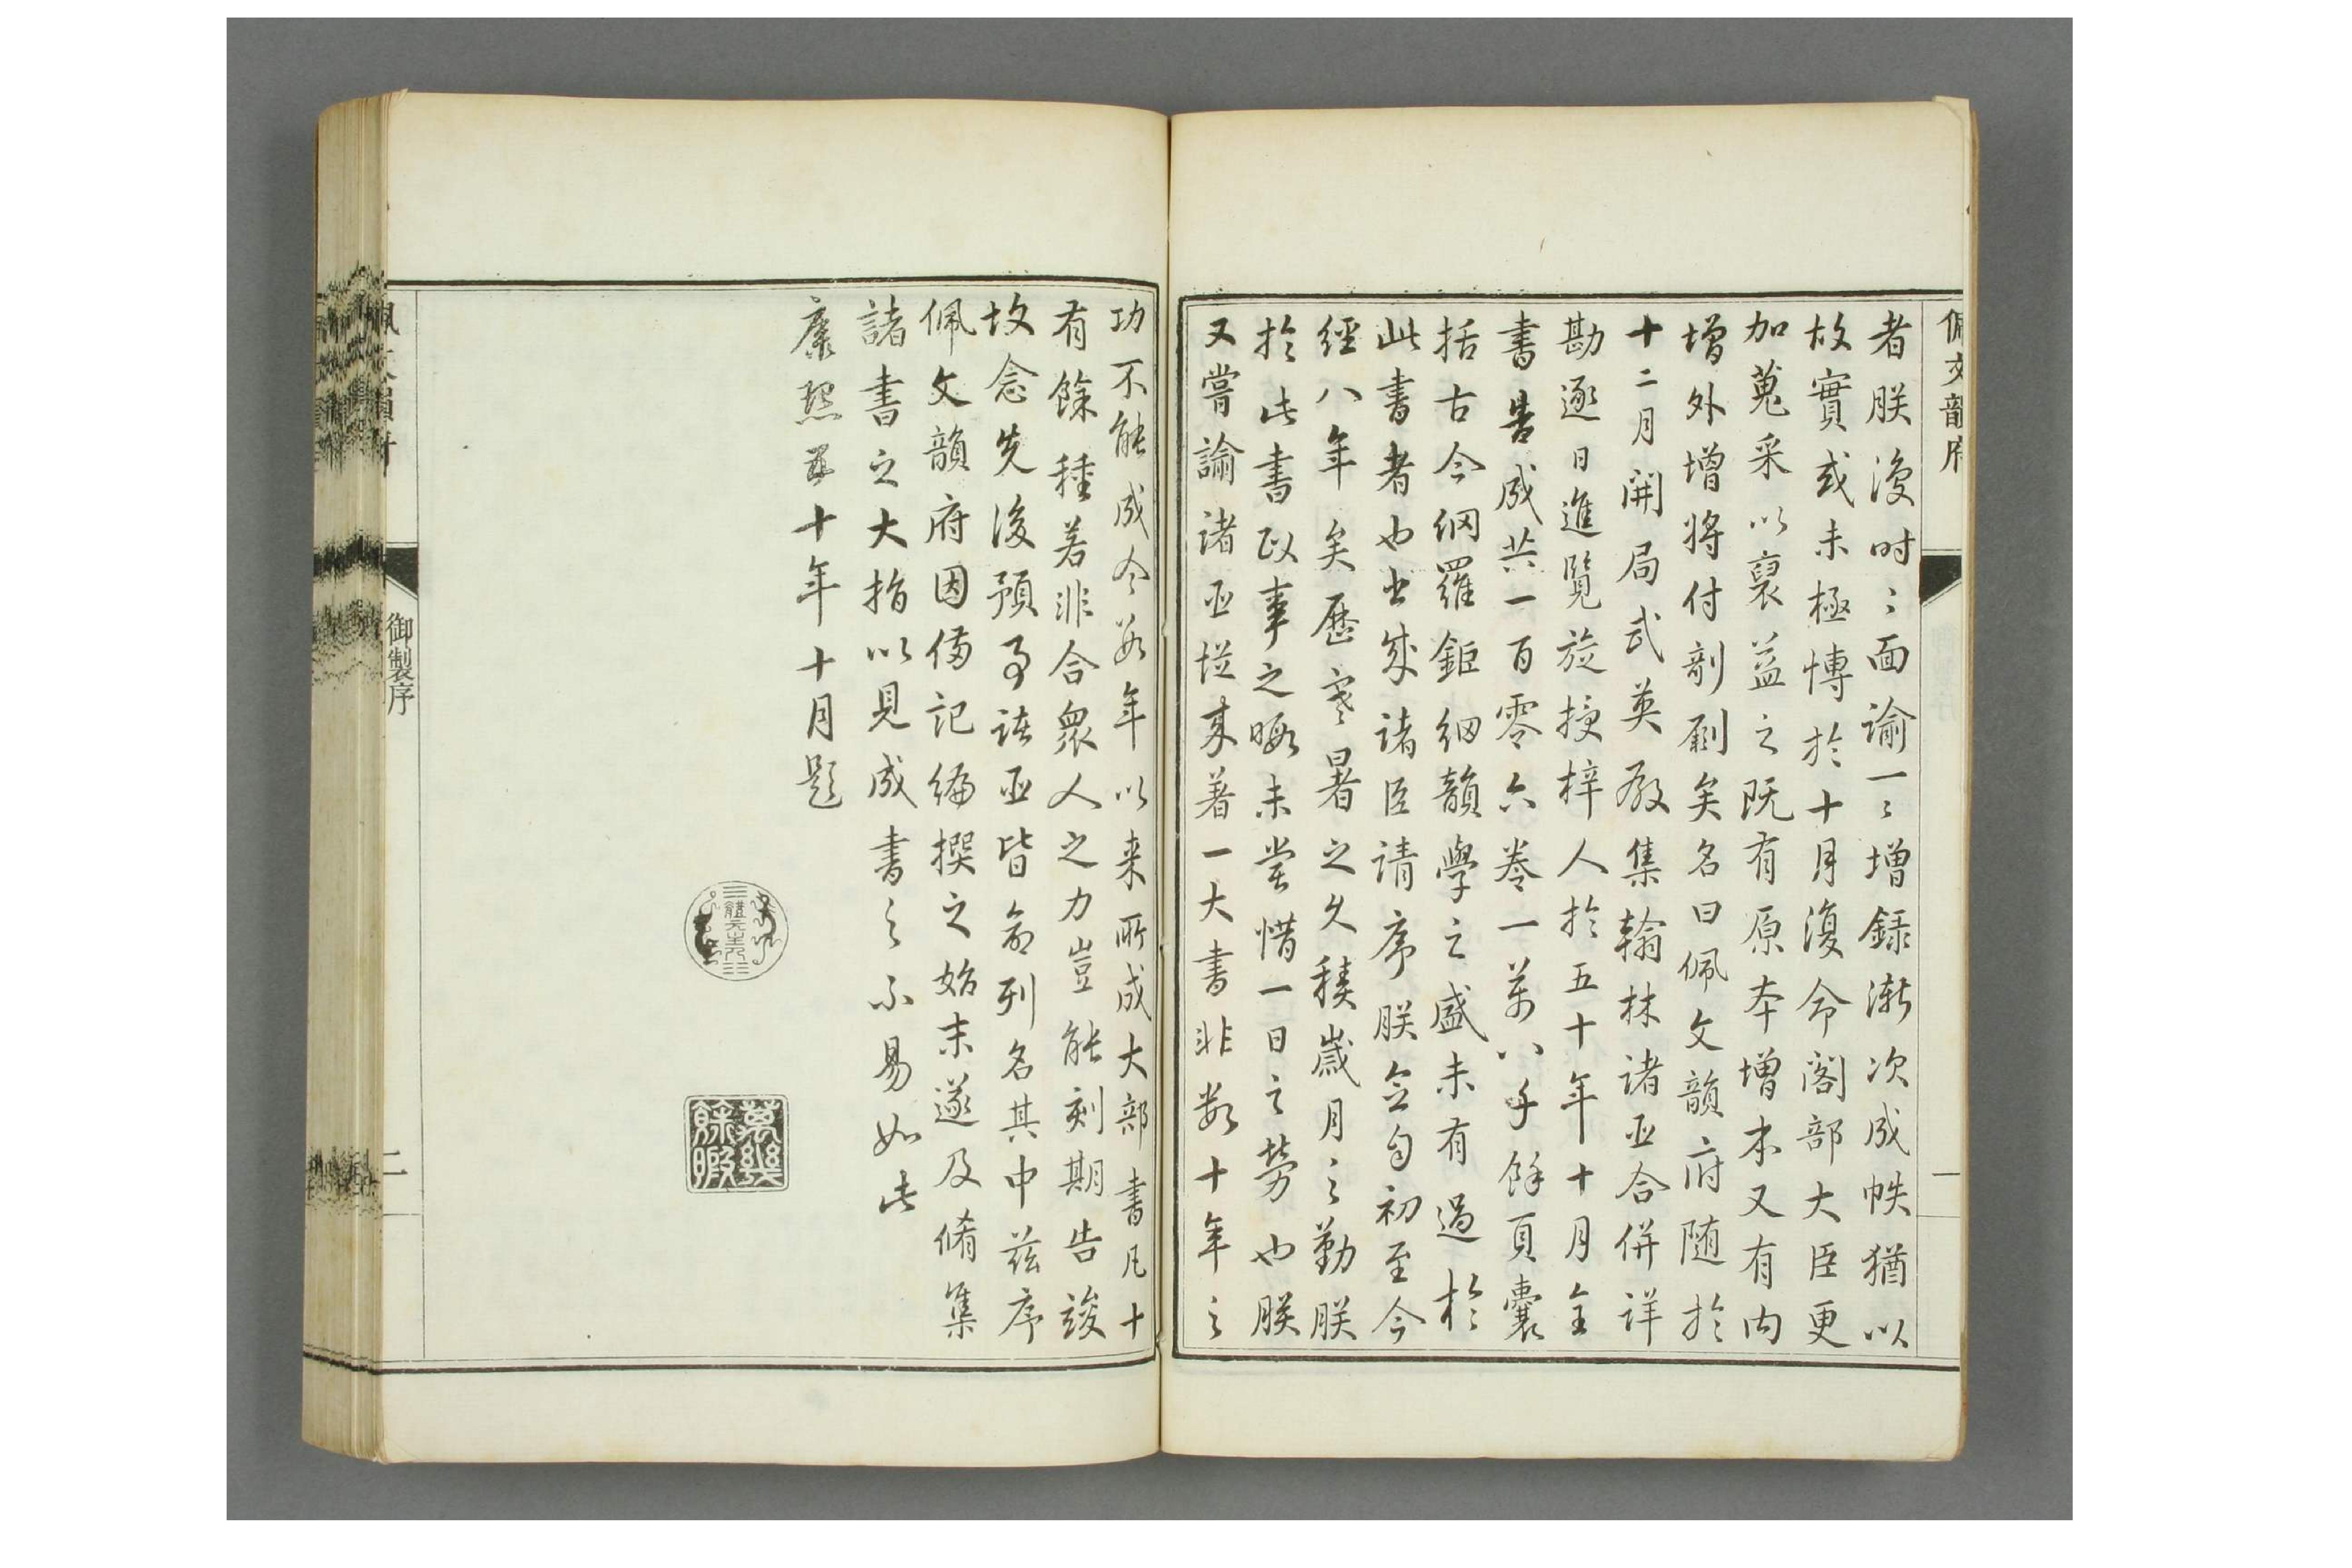 佩文韻府
一
者朕復時〻面諭一〻增錄漸次成帙猶以
故實或未極博於十月復命閣部大臣更
加蒐采以裒益之既有原本增本又有內
增外增將付剞劂矣名曰佩文韻府随於
十二月開局武英殿集翰林諸臣合併詳
勘逐日進覽旋授梓人於五十年十月全
書告成共一百零六卷一萬八千餘頁囊
括古今網羅鉅細韻學之盛未有過於
此書者也書成諸臣請序朕念自初至今
經八年矣歷寒暑之久積歲月之勤朕
於此書政事之暇未嘗惜一日之勞也朕
又嘗諭諸臣從來著一大書非數十年之
功不能成今數年以来所成大部書凡十
有餘種若非合眾人之力豈能刻期告竣
故念先後預事諸臣皆命列名其中茲序
佩文韻府因備記編撰之始末遂及脩集
諸書之大指以見成書之不易如此
康熙五十年十月題
體元主人
萬幾餘暇
佩文韻府
御製序
二